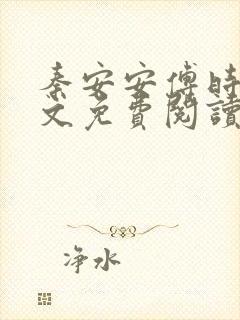 秦安安傅时
文免費閱讀
净水